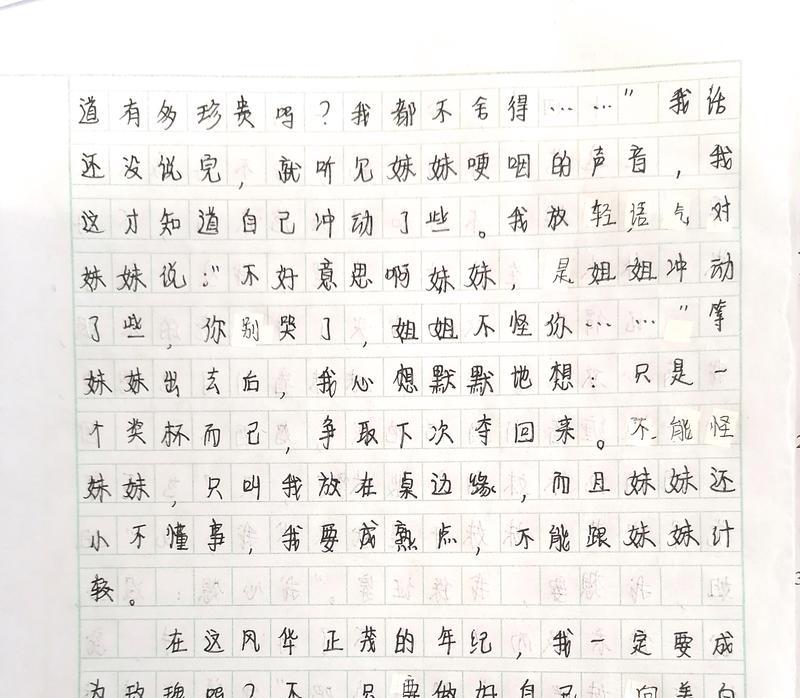 道有多珍贵吗？我都不舍得……”我话
还没说完，就听见妹妹哽咽的声音，我
这才知道自己冲动了些。我放轻语气对
妹妹说：“不好意思啊妹妹，是姐姐冲动
了些，你别哭了，姐姐不怪你……”等
妹妹出去后，我心想默默地想：只是一
个奖杯而已，争取下次夺回来。不能怪
妹妹，只叫我放在桌边缘，而且妹妹还
小不懂事，我要成熟点，不能跟妹妹计
较。
在这风华正茂的年纪，我一定要成
为玫瑰吗？不，只要做好自己